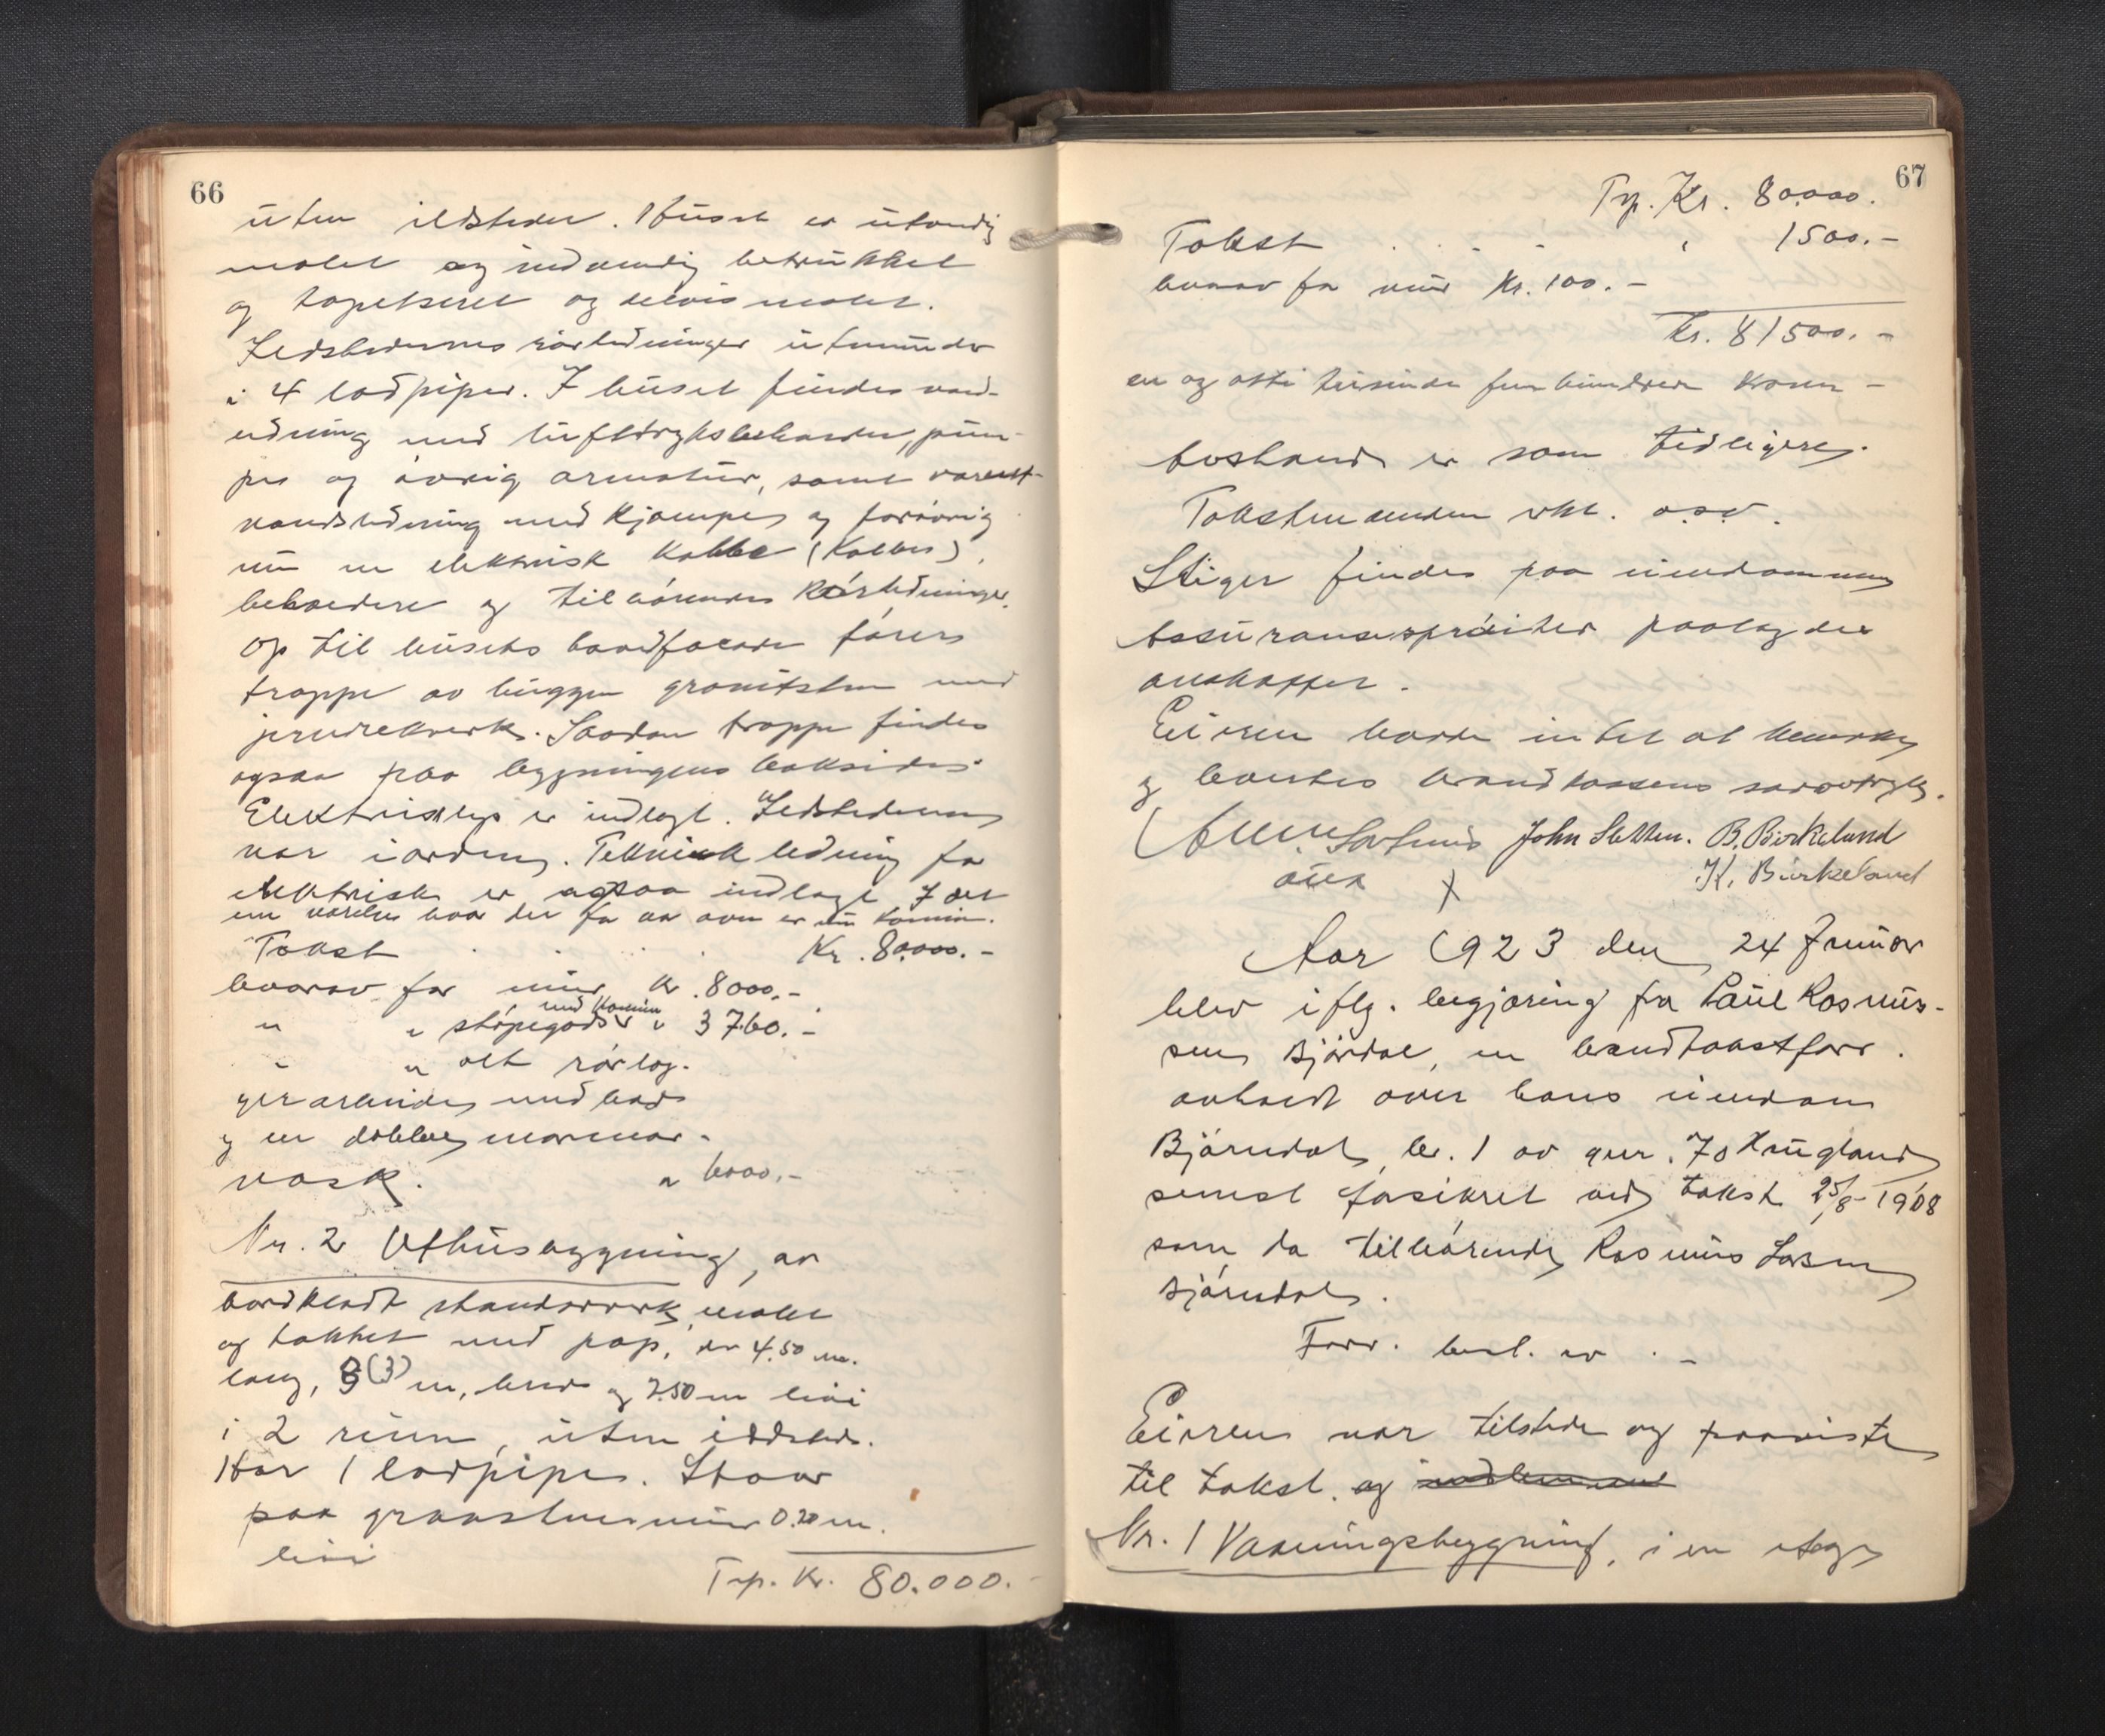 66
uten ildsteder. Huset er utvendig
malet og indvendig betrukket
og tapetseret og delvis malet.
Ildstedernes rørledninger utmunder
i 4 lodpiper. I huset findes vand-
ledning med lufttryksbeholder, pum-
pe og øvrig armatur, samt varmt-
vandsledning med og forøvrig
en elektrisk Kolbe (Kolber),
beholdere og tilhørende Rørledninger.
Op til husets hovedfacade fører
trappe av huggen granitsten med
jernrekverk. Saadan trappe findes
ogsaa paa bygningens bakside.
Elektrisk lys er indlagt. Ildstederne
var i orden. Teknisk ledning for
elektrisk er ogsaa indlagt I det
ene værelse hvor der før var ovn er nu kamin.
Takst . . . . Kr. 80.000.-
hvorav for mur Kr. 8000.-
" " støpegods med Kamin " 3760.-
" " alt rørlæg-
gerarbeide med bad
og en dobbel marmor-
vask. " 6000.-
Nr. 2 Uthusbygning, av
bordklædt standerverk, malet
og tækket med pap, er 4.50 m.
lang, 3 (3) m. bred og 2.50 m høi
i 2 rum, uten ildsted.
Har 1 lodpipe. Staar
paa graastensmur 0.20 m.
høi
Trp. Kr. 80.000.-
67
Trp. Kr. 80.000.
Takst . . . . " 1500.-
hvorav for mur Kr. 100.-
Kr. 81500.-
en og otti tusinde fem hundrede Kroner -
Avstand er som tidligere.
Takstmændene erkl. o.s.v.
Stiger findes paa eiendommen
Assuransesprøiter paalagdes
anskaffet.
Eieren havde intet at bemerke
og hævetes brandkassens særavtryk.
John Sletten. B. Birkeland
K. Birkeland
X
Aar 1923 den 24 Januar
blev iflg. begjæring fra Paul Rasmus-
sen Bjørdal, en brandtakstforr.
avholdt over hans eiendom
Bjørndal, br. 1 av gnr. 70 Haugland
senest forsikret ved takst 25/8-1908
som da tilhørende Rasmus Larsen
Bjørndal.
Forr. best. av . -
Eieren var tilstede og paaviste
til takst. og
Nr. 1 Vaaningsbygning, i en etage